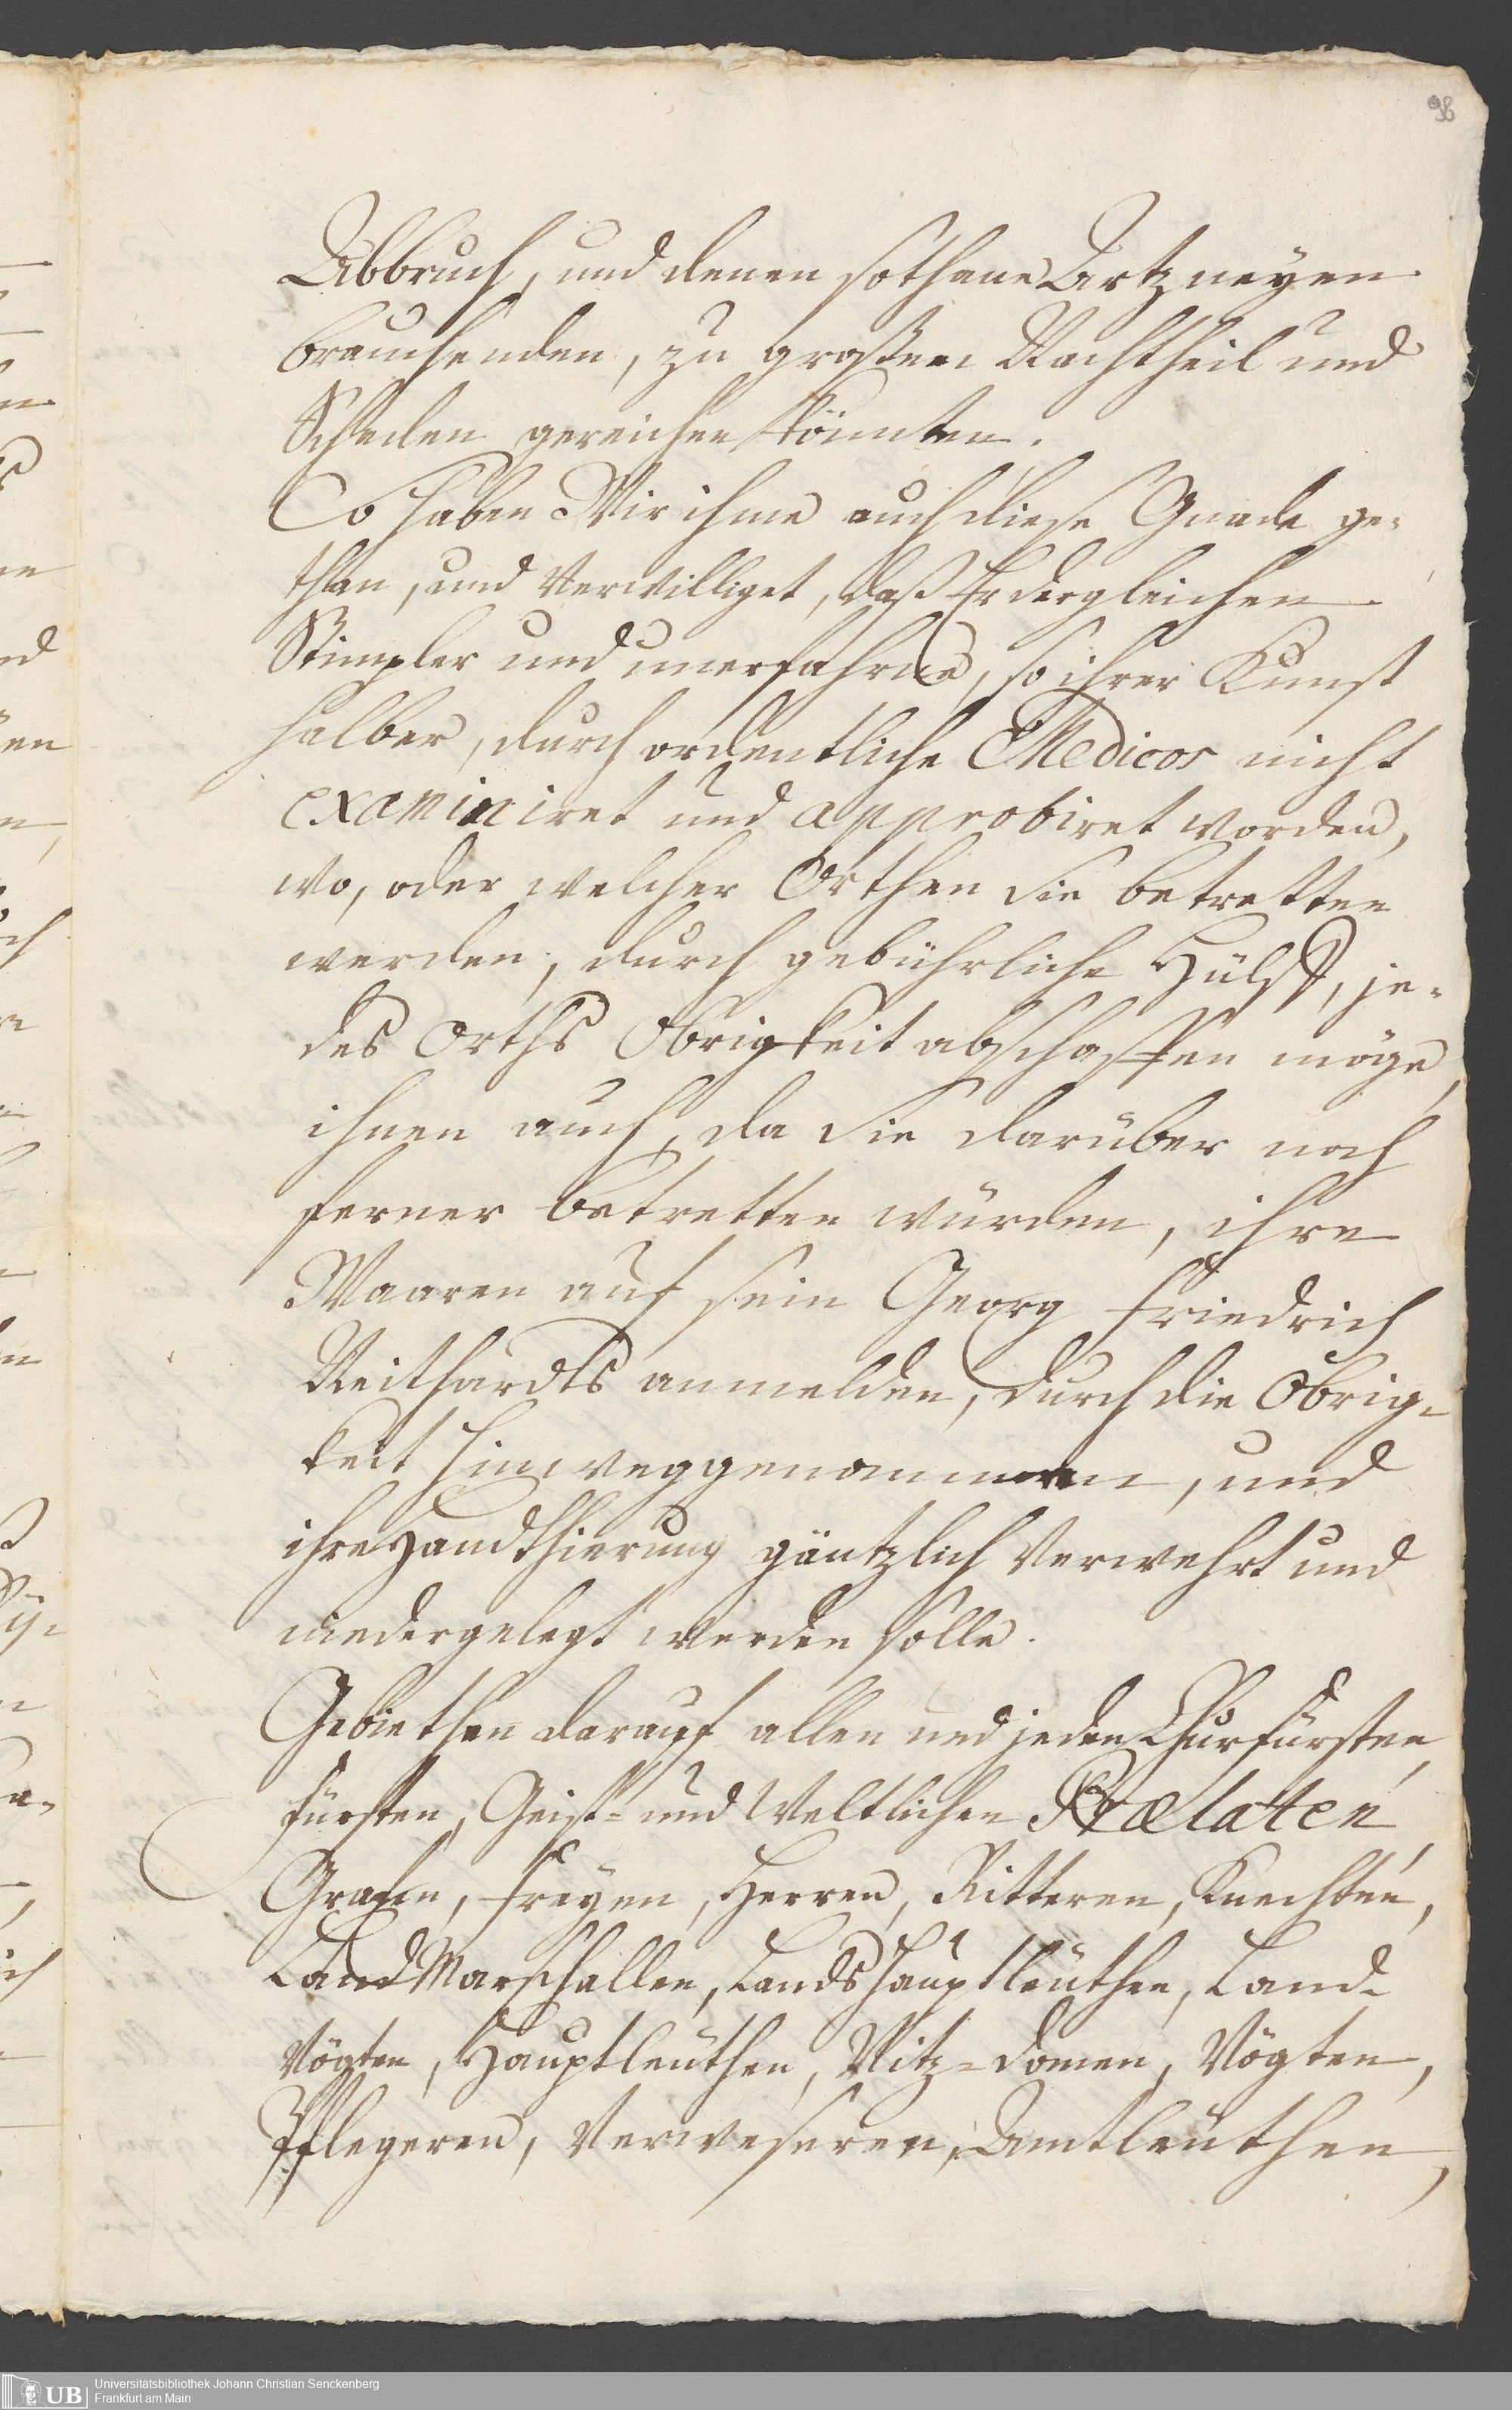 98
Abbruch, und denen sothane Artzneyen
brauchenden, zu großem Nachtheil und
Schaden gereichen könnten.
So haben Wir ihme auch diese Gnade ge-
than, und Verwilliget, daß Er dergleichen
Stimpler und unerfahrne, so ihrer Kunst
halber, durch ordentliche Medicos nicht
examiniret und approbiret worden,
wo, oder welcher Orthen Sie betretten
werden, durch gebührliche Hülff, je-
des Orths Obrigkeit abschaffen möge,
ihnen auch, da Sie darüber noch
ferner betretten würden, ihre
Waaren auf sein Georg Friedrich
Neithardts anmelden, durch die Obrig-
keit hinweggenommen, und
ihre Handthierung gäntzlich Verwehrt und
niedergelegt werden solle.
Gebiethen darauf allen und jeden Churfürsten,
Fürsten, Geist- und Weltlichen Prælaten,
Grafen, Freyen, Herren, Ritteren, Knechten,
Land Marschallen, Landshauptleuthen, Land-
Vögten, Hauptleuthen, Vitz-domen, Vögten,
Pflegeren, Verweseren, Amtleuthen,
UB
Universitätsbibliothek Johann Christian Senckenberg
Frankfurt am Main